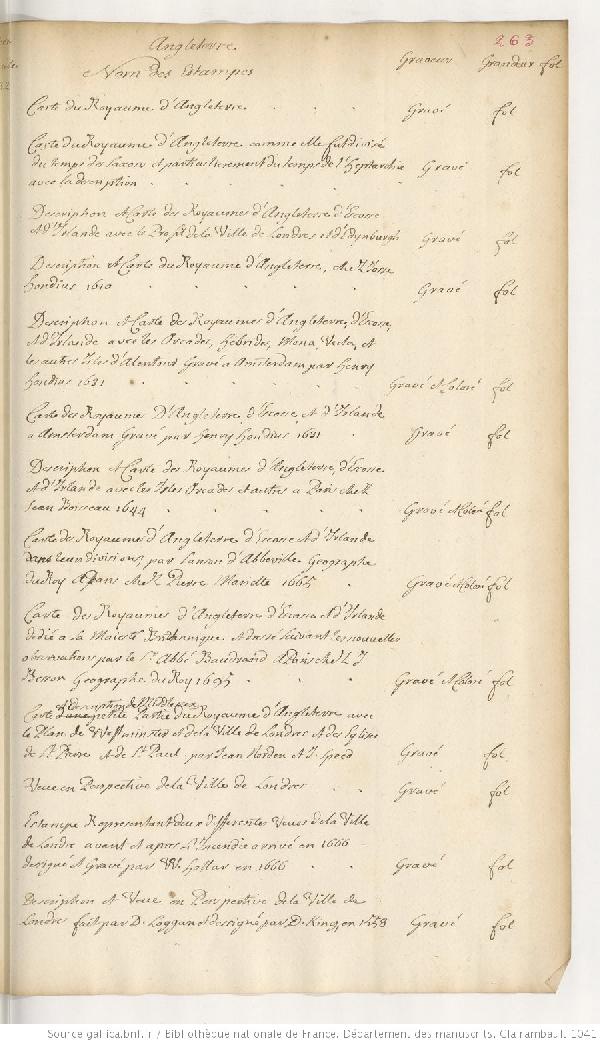 263
Angleterre.
Nom des Estampes Graveur Grandeur fol
Carte du Royaume d'Angleterre. Gravé fol
Carte du Royaume d'Angleterre comme elle fut divisé
du temps des Saxons et particulierement du temps de l'Heptarchie Gravé fol
avec la description
Description & Carte des Royaumes d'Angleterre d'Ecosse
& d'Irlande avec le Prof. de la Ville de Londres & d'Edynburgh Gravé fol
Description & Carte du Royaume d'Angleterre, chez Josse
Hondius 1610 Gravé fol
Description & Carte des Royaumes d'Angleterre, d'Ecosse,
& d'Irlande avec les Orcades, Hebrides, Mona, Vecta, et
les autres Isles d'alentour Gravé a Amsterdam par Henry
Hondius 1631 Gravé & Coloré fol
Carte des Royaume D'Angleterre d'Ecosse & d'Irlande
a Amsterdam Gravé par Henry Hondius 1631 Gravé fol
Description & Carte des Royaumes d'Angleterre, d'Ecosse
& d'Irlande avec les Isles Orcades & autres a Paris chez
Jean Boisseau 1644 Gravé & Coloré fol
Carte des Royaumes d'Angleterre d'Ecosse & d'Irlande
dans leurs divisions par Sanson d'Abbeville Geographe
du Roy A Paris chez Pierre Mariette 1665 Gravé & Coloré fol
Carte des Royaumes d'Angleterre d'Ecosse & d'Irlande
dedié a la Majesté Britannique. & dressé suivant les nouvelles
observations par le Sr. Abbé Baudrand A Paris chez I. B
Besson Geographe du Roy 1695 Gravé & Coloré fol
& description de Middlesex
Carte d'une petite Partie du Royaume d'Angleterre avec
le Plan de Westminster & de la Ville de Londres & des Eglises
de St. Pierre & de St. Paul par Jean Norden & J. Speed Gravé fol
Veue en Perspective de la Ville de Londres Gravé fol
Estampe Representant deux differentes Veues de la Ville
de Londre avant & apres l'Incendie arrivé en 1666
designé & Gravé par W. Hollar en 1666 Gravé fol
Description & Veue en Perspective de la Ville de
Londres fait par D. Loggan & designé par D. King, en 1658 Gravé fol
Source gallica.bnf.fr / Bibliothèque nationale de France. Département des manuscrits. Clairambault 1041